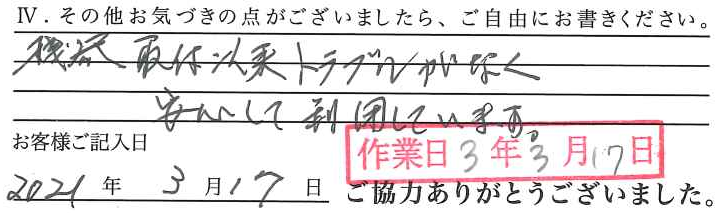 Ⅳ．その他お気づきの点がございましたら、ご自由にお書きください。
機器取付以来トラブルがなく
安心して利用しています。
お客様ご記入日
作業日 3年3月17日
2021年3月17日
ご協力ありがとうございました。